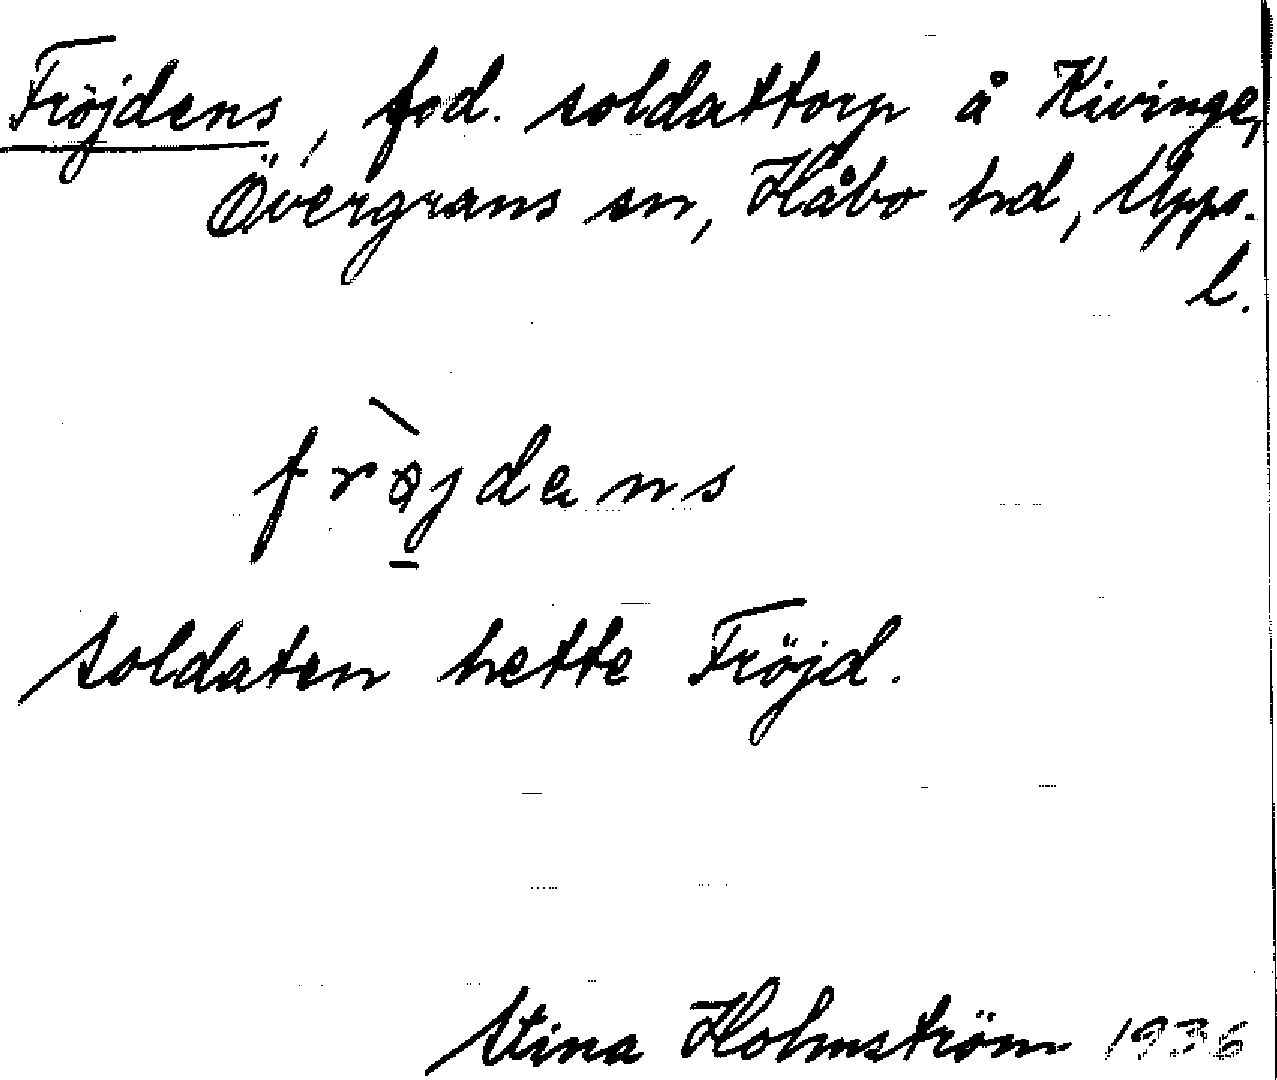 Fröjdens, fod. soldattorp å Kivinge,
Övergrans sn, Håbo hd, Upps.
l.
fròjdens
soldaten hette Fröjd.
Stina Holmström 1936